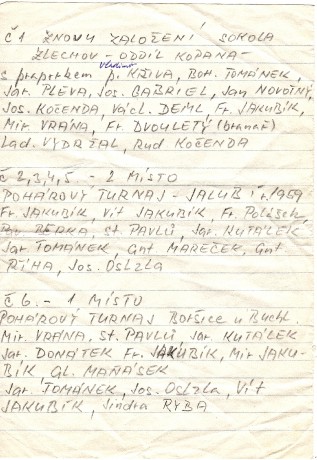 Č1 ZNOVU ZALOŽENÍ SOKOLA
ZLECHOV - ODDÍL KOPANÁ -
Vladimír
s praporkem p. KŘIVA, BOH. TOMÁNEK,
Jar. PLEVA, Jos. GABRIEL, Jan NOVOTNÝ,
Jos. KOČENDA, Václ. DEML, Fr. JAKUBÍK,
Mir. VRÁNA, Fr. DVOULETÝ (brankář)
Lad. VYDRŽAL, Rud KOČENDA
Č 2,3,4,5. - 2 MÍSTO
POHÁROVÝ TURNAJ - JALUBÍ r. 1959
Fr. JAKUBÍK, Vít JAKUBÍK, Fr. Polášek,
BERKA, St. PAVLŮ, Jar. KUTÁLEK
Jar TOMÁNEK, Ant MAREČEK, Ant
ŘÍHA, Jos. Oslzla
Č 6. - 1 MÍSTO
POHÁROVÝ TURNAJ Boršice u Buchl.
Mir. VRÁNA, St. PAVLŮ Jar. KUTÁLEK
Jar. DONÁTEK Fr. JAKUBÍK, Mir JAKU-
BÍK, Al. MAŇÁSEK
Jar. TOMÁNEK, Jos. Oslzla, Vít
JAKUBÍK, Jindra RYBA